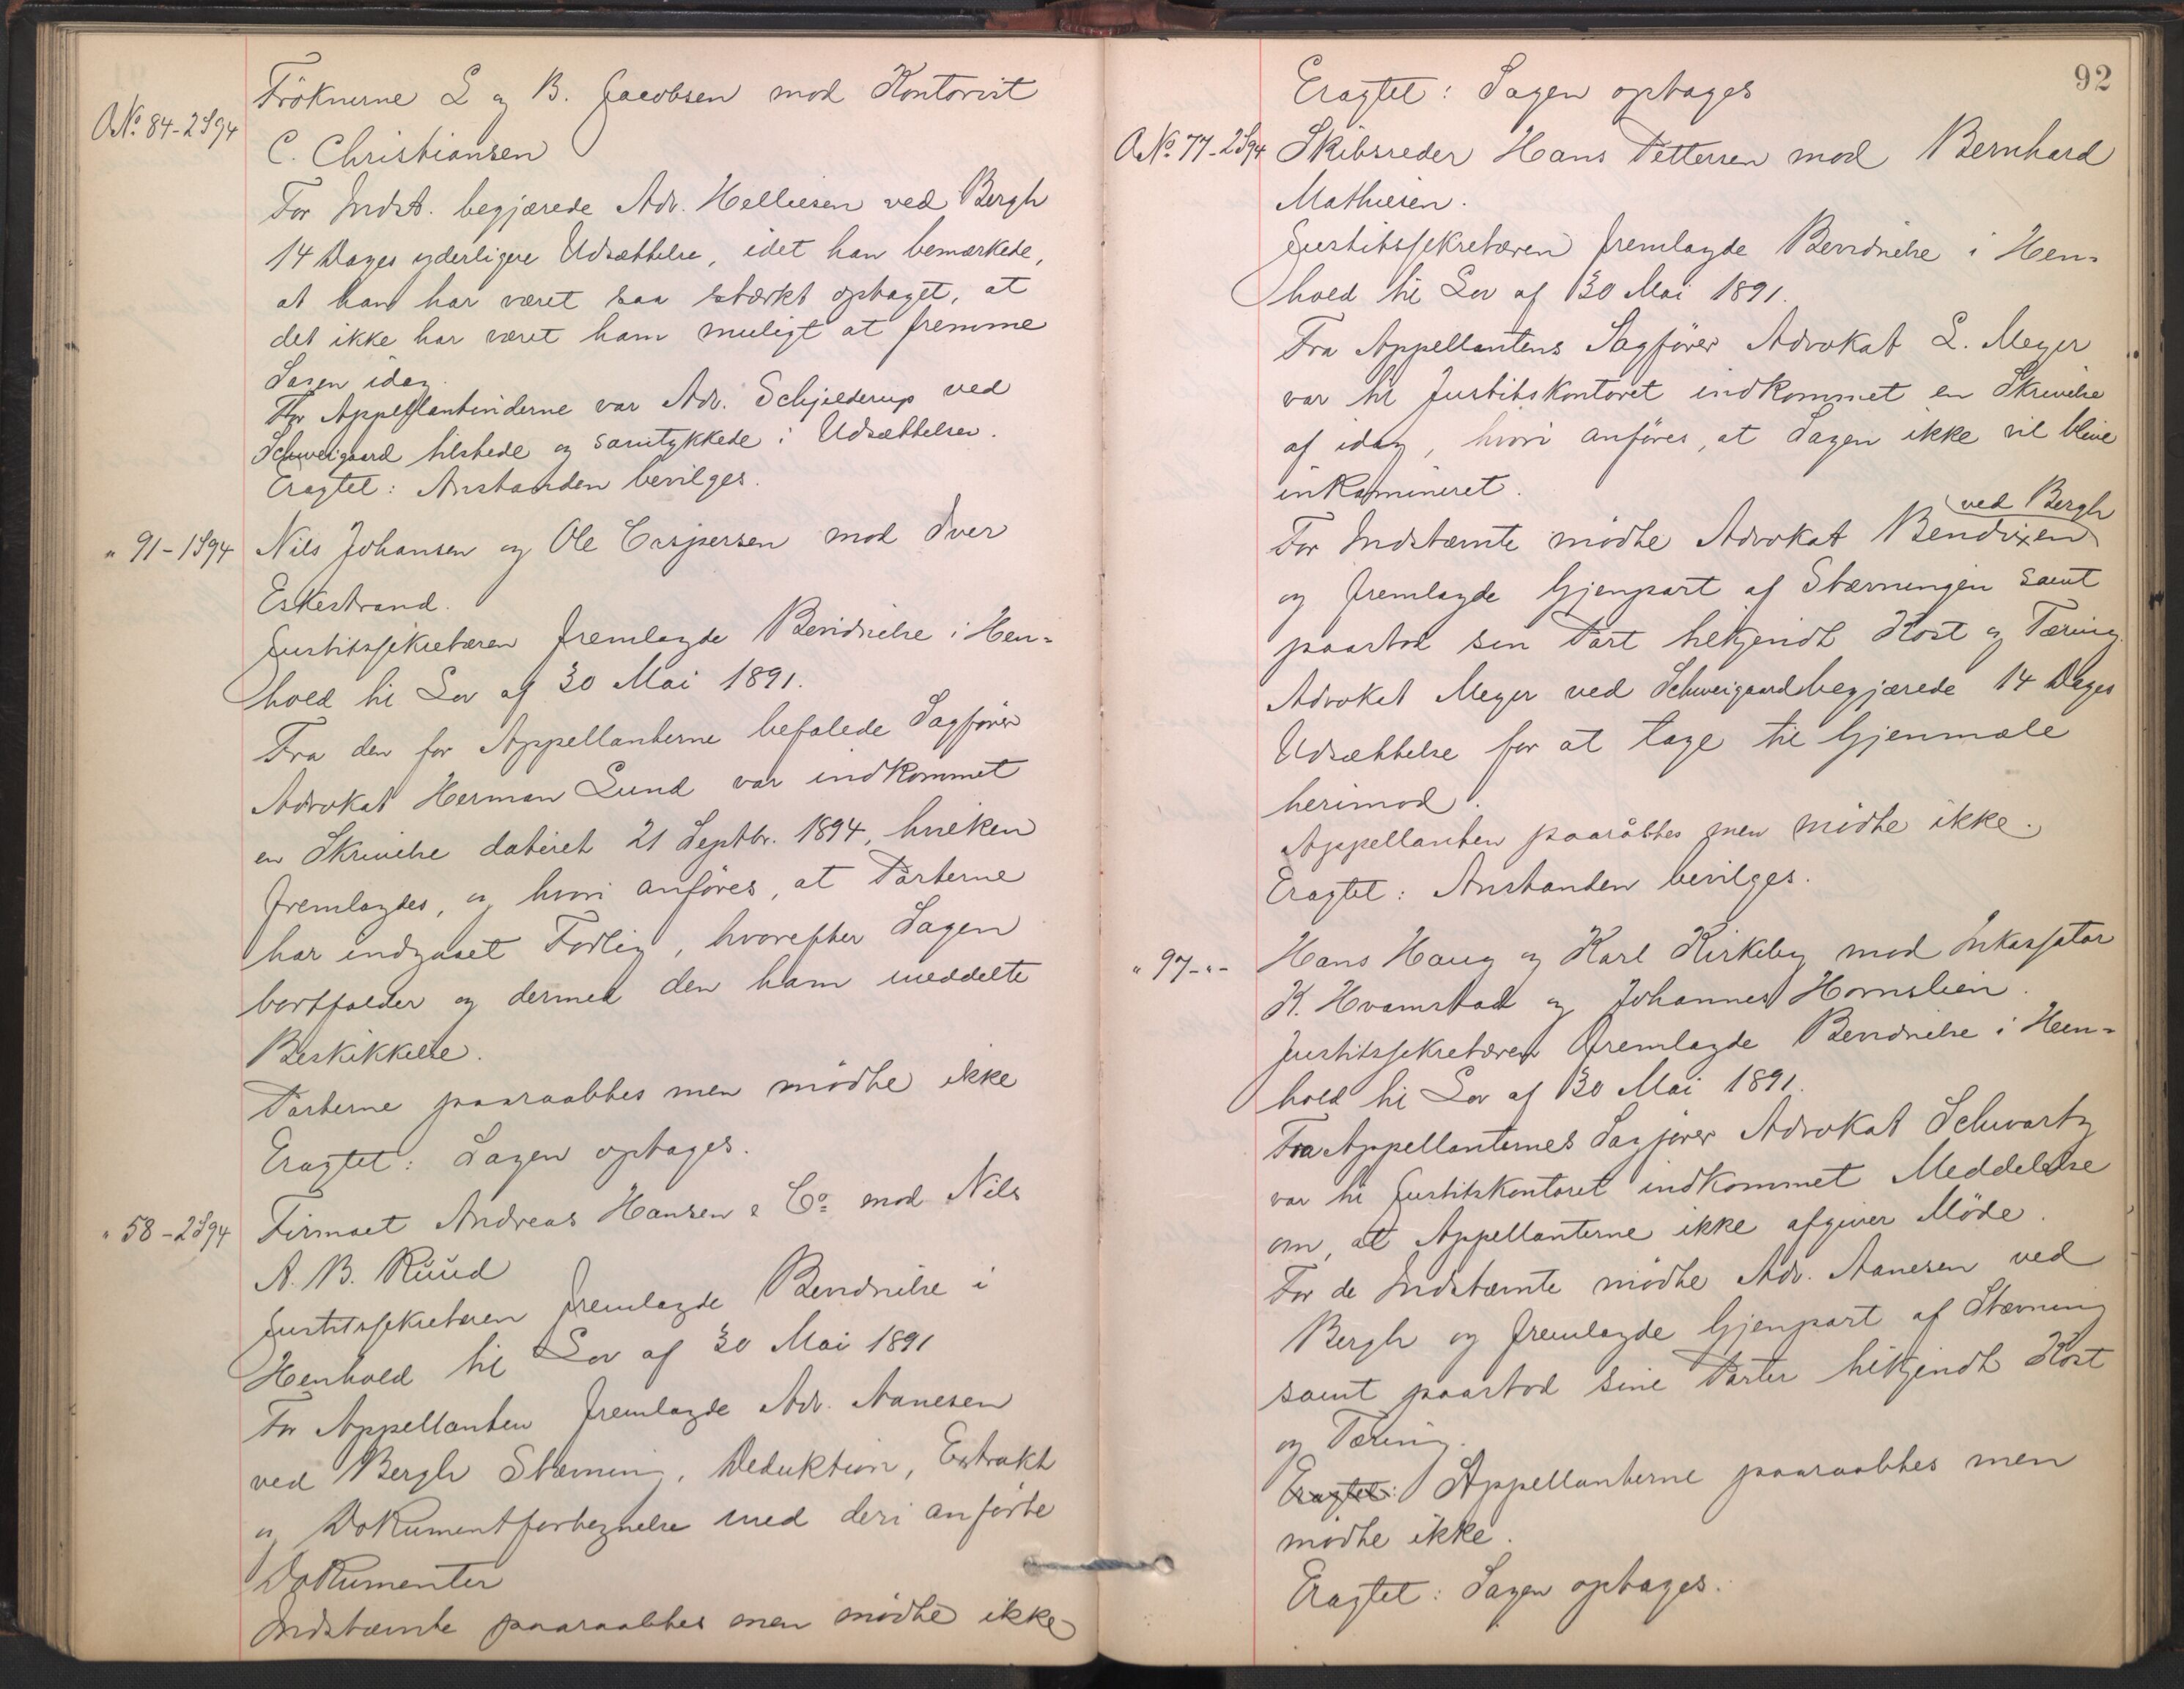 Frøknerne L og B. Jacobsen mod Kontorist
A No. 84-2S94
C. Christiansen
For Indst. begjærede Adv. Helliesen ved Bergh
14 Dages yderligere Udsættelse, idet han bemærkede,
at han har været saa stærkt optaget, at
det ikke har været ham muligt at fremme
Sagen idag.
For Appellantinderne var Adv. Schjelderup ved
Schweigaard tilstede og samtykkede i Udsættelsen.
Eragtet: Anstanden bevilges.
" 91-1S94 Nils Johansen og Ole Caspersen mod Iver
Eskestrand.
Justitssekretæren fremlagde Bevidnelse i Hen-
hold til Lov af 30 Mai 1891.
Fra den for Appellanterne befalede Sagfører
Advokat Herman Lund var indkommet
en Skrivelse dateret 21 Septbr. 1894, hvilken
fremlagdes, og hvori anføres, at Parterne
har indgaaet Forlig, hvorefter Sagen
bortfalder og dermed den ham meddelte
Beskikkelse.
Parterne paaraabtes men mødte ikke
Eragtet: Sagen optages.
" 58-2S94 Firmaet Andreas Hansen & Co mod Nils
A. B. Ruud
Justitssekretæren fremlagde Bevidnelse i
Henhold til Lov af 30 Mai 1891
For Appellanten fremlagde Adv. Aanesen
ved Bergh Stævning, Deduktion, Extrakt
og Dokumentfortegnelse med deri anførte
Dokumenter
Indstævnte paaraabtes men mødte ikke
92
Eragtet: Sagen optages
A No. 77-2S94 Skibsreder Hans Pettersen mod Bernhard
Mathiesen.
Justitssekretæren fremlagde Bevidnelse i Hen-
hold til Lov af 30 Mai 1891.
Fra Appellantens Sagfører Advokat L. Meyer
var til Justitskontoret indkommet en Skrivelse
af idag, hvori anføres, at Sagen ikke vil blive
inkamineret.
ved Bergh
For Indstævnte mødte Advokat Bendixen
og fremlagde Gjenpart af Stævningen samt
paastod sin Part tilkjendt Kost og Tæring.
Advokat Meyer ved Schweigaard begjærede 14 Dages
Udsættelse for at tage til Gjenmæle
herimod.
Appellanten paaråbtes men mødte ikke.
Eragtet: Anstanden bevilges.
" 97-"- Hans Haug og Karl Kirkeby mod Inkassator
K. Hvamstad og Johannes Hornslien.
Justitssekretæren fremlagde Bevidnelse i Hen-
hold til Lov af 30 Mai 1891.
Fra Appellanternes Sagfører Advokat Schwartz
var til Justitskontoret indkommet Meddelelse
om, at Appellanterne ikke afgiver Møde.
For de Indstævnte mødte Adv. Aanesen ved
Bergh og fremlagde Gjenpart af Stævning
samt paastod sine Parter tilkjendt Kost
og Tæring.
Eragtet: Appellanterne paaraabtes men
mødte ikke.
Eragtet: Sagen optages.